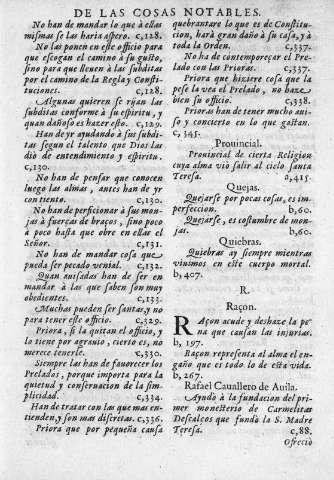 DE LAS COSAS NOTABLES.
No han de mandar lo que à ellas
mismas se las haria aspero. c,128.
No las ponen en este officio para
que escogan el camino a su gusto,
sino para que lleuen à las subditas
por el camino de la Regla y Consti-
tuciones. c,128.
Algunas quieren se rijan las
subditas conforme à su espiritu, y
quan dañoso es hazer esto. c,129.
Han de yr ayudando à sus subdi-
tas segun el talento que Dios las
dio de entendimiento y espiritu.
c,130.
No han de pensar que conocen
luego las almas, antes han de yr
con tiento. c,130.
No han de perficionar à sus mon-
jas à fuerças de braços, sino poco
à poco hasta que obre en ellas el
Señor. c,131.
No han de mandar cosa que
pueda ser pecado venial. c,132.
Quan auisadas han de ser en
mandar à las que saben son muy
obedientes. c,133.
Muchas pueden ser santas, y no
para tener este officio. c,329.
Priora, si la quitan el officio, y
lo tiene por agrauio, cierto es, no
merece tenerle. c,330.
Siempre las han de fauorecer los
Prelados, porque importa para la
quietud y conseruacion de la sim-
plicidad. c,334.
Han de tratar con las que mas en-
tienden, y son mas discretas. c,336.
Priora que por pequeña causa
quebrantare lo que es de Constitu-
cion, harà gran daño à su casa, y à
toda la Orden. c,337.
No ha de contemporeçar el Pre-
lado con las Prioras. c,337.
Priora que hiziere cosa que la
pese la vea el Prelado, no haze
bien su officio. c,338.
Prioras han de tener mucho aui-
so y concierto en lo que gastan.
c, 345.
Prouincial.
Prouincial de cierta Religion
cuya alma viò salir al cielo santa
Teresa. a,415.
Quejas.
Quejarse por pocas cosas, es im-
perfeccion. b,60.
Quejarse, es costumbre de mon-
jas. b,60.
Quiebras.
Quiebras ay siempre mientras
viuimos en este cuerpo mortal.
b, 407.
R.
Raçon.
RAçon acude y deshaze la pe-
na que causan las injurias.
b, 197.
Raçon representa al alma el en-
gaño que es todo lo de esta vida.
b, 267.
Rafael Cauallero de Auila.
Ayudò à la fundacion del pri-
mer monesterio de Carmelitas
Descalços que fundò la S. Madre
Teresa. c,88.
Ofreciò